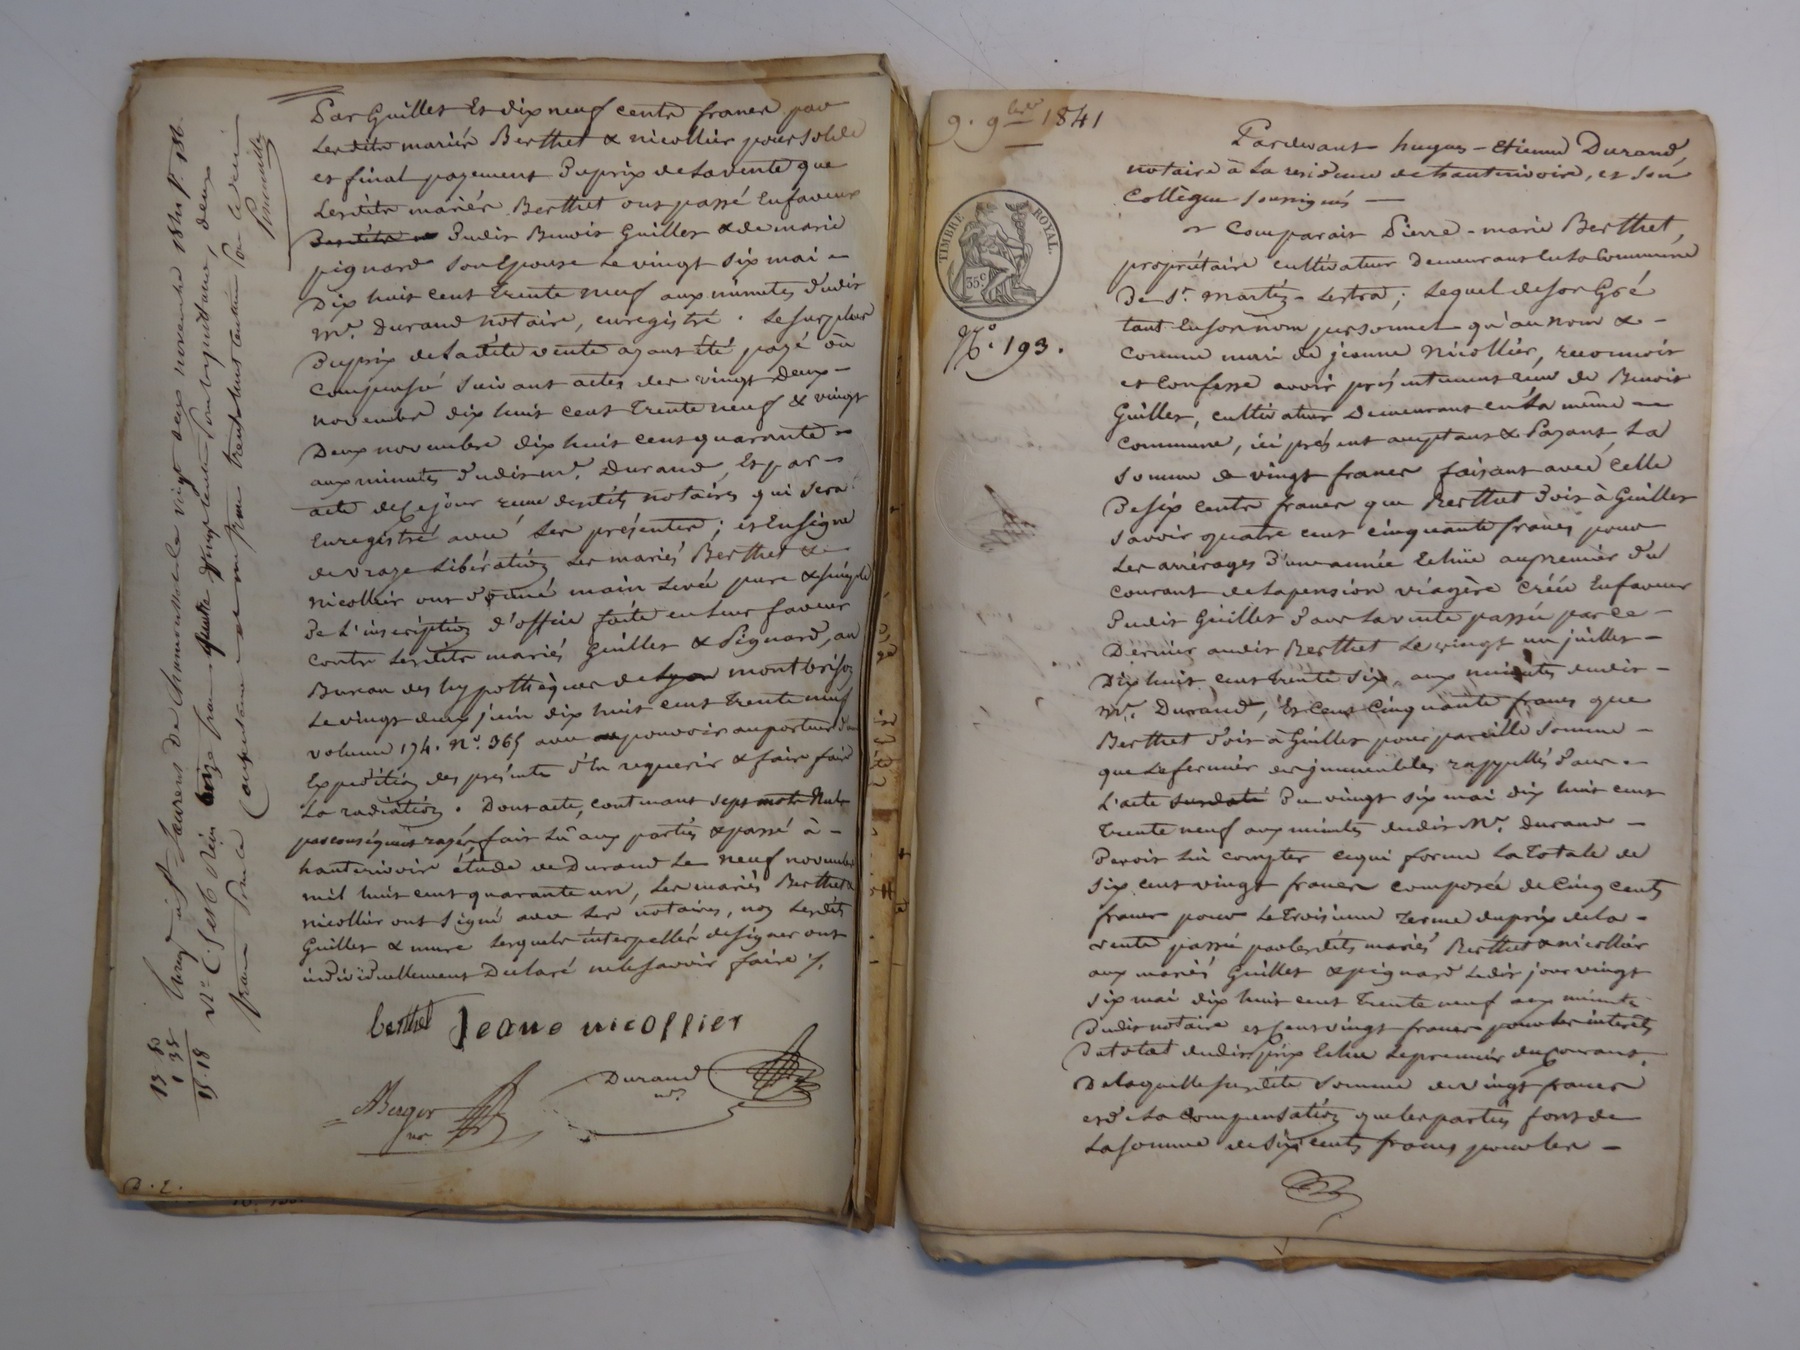 Par Guillet et dix neuf cents francs par
lesdits mariés Berthet & nicollier pour solde
et final payement du prix de la vente que
lesdits mariés Berthet ont passé en faveur
dudit Benoit Guillet & de marie
pignard son épouse le vingt six mai
dix huit cent trente neuf aux minutes dudit
Me. Durand notaire, enregistré. Le surplus
du prix de la dite vente ayant été payé ou
compensé suivant actes des vingt deux
novembre dix huit cent trente neuf & vingt
deux novembre dix huit cent quarante
aux minutes dudit me. Durand, et par
acte de ce jour reçu desdits notaires qui sera
enregistré avec les présentes; et en signe
de vraye libération les mariés Berthet &
nicollier ont donné main levée pure & simple
de l'inscription d'office faite en leur faveur
contre lesdits mariés Guillet & Pignard, au
Bureau des hypothèques de Lyon montbrison
le vingt deux juin dix huit cent trente neuf
volume 174. No. 365 avec pouvoir au porteur d'une
expédition des présentes d'en requerir & faire faire
la radiation. Dont acte, contenant sept mots nuls
par conséquent rayés fait lû aux parties & passé à
hauterivoire étude de Durand le neuf novembre
mil huit cent quarante un, les mariés Berthet &
nicollier ont signé avec les notaires, non lesdits
Guillet & mure lesquels interpellés de signer ont
individuellement declaré ne le savoir faire ./.
berthet Jeane nicollier
Berger
nre
Durand
nre
13-80
1 38
15-18
9. 9bre 1841
TIMBRE ROYAL.
35c
No. 193.
Pardevant hugues-Etienne Durand,
notaire à la residence de hauterivoire, et son
Collègue soussignés —
Comparait Pierre-marie Berthet,
propriétaire cultivateur demeurant en la Commune
de St. martin-Lestra; lequel de son Gré
tant en son nom personnel qu'au nom &
comme mari de jeanne Nicollier, reconnoit
et confesse avoir présentement reçu de Benoit
Guillet, cultivateur demeurant en la même
commune, ici présent acceptant & Payant, la
somme de vingt francs faisant avec celle
de six cents francs que Berthet doit à Guillet
savoir quatre cent cinquante francs pour
les arrérages d'une année echue au premier du
courant de la pension viagère créée en faveur
dudit Guillet dans la vente passée par ce
dernier audit Berthet le vingt un juillet
dix huit cent trente six, aux minutes dudit
Me. Durand, et Cent Cinquante francs que
Berthet doit à Guillet pour pareille somme
que le fermier des immeubles rappellés dans
l'acte susdaté du vingt six mai dix huit cent
trente neuf aux minutes dudit Me. Durand
devoit lui compter ce qui forme la totale de
six cent vingt francs composée de Cinq cents
francs pour le troisieme terme du prix de la
vente passée par lesdits mariés Berthet & nicollier
aux mariés Guillet & pignard ledit jour vingt
six mai dix huit cent trente neuf aux minutes
dudit notaire et Cent vingt francs pour les interets
du total dudit prix echue le premier du courant.
De laquelle susdite somme de vingt francs
et de la compensation que les parties font de
la somme de six cents francs pour les